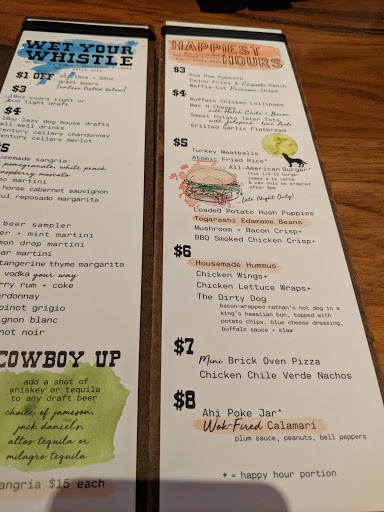 WET YOUR
WHISTLE
$1 OFF
draft beers
(unless listed below)
$3
16oz coors light or
bud light draft
$4
16oz lazy dog house drafts
all well drinks
century cellars chardonnay
century cellars merlot
housemade sangria:
pomegranate, white peach
raspberry moscato
martini
horse cabernet sauvignon
reposado margarita
beer sampler
+ mint martini
drop martini
martini
tangerine thyme margarita
vodka your way
rum + coke
pinot grigio
blanc
noir
COWBOY UP
add a shot of
whiskey or tequila
to any draft beer
choice of jameson,
jack daniels,
altos tequila or
milagro tequila
sangria $15 each
HAPPIEST
HOURS
$3
Pom Pom Popcorn
Cajun Fries & Chipotle Ranch
Waffle-Cut Parmesan Chips
$4
Buffalo Chicken Lollipops
Mac N Cheese
with Hatch Chile + Bacon
Sweet Potato Tater Tots
with Jalapeño-lime Aioli
Grilled Garlic Flatbread
$5
Turkey Meatballs
Atomic Fried Rice*
All-American Burger*
this 1/4 lb burger
comes a la carte
& can only be ordered
after 9pm
Late Night Only!
Loaded Potato Hush Puppies
Togarashi Edamame Beans
Mushroom + Bacon Crisp+
BBQ Smoked Chicken Crisp+
$6
Housemade Hummus
Chicken Wings+
Chicken Lettuce Wraps+
The Dirty Dog
bacon-wrapped nathan's hot dog in a
king's hawaiian bun, topped with
potato chips, blue cheese dressing,
buffalo sauce + slaw
$7
Mini Brick Oven Pizza
Chicken Chile Verde Nachos
$8
Ahi Poke Jar*
Wok-Fired Calamari
plum sauce, peanuts, bell peppers
+ = happy hour portion